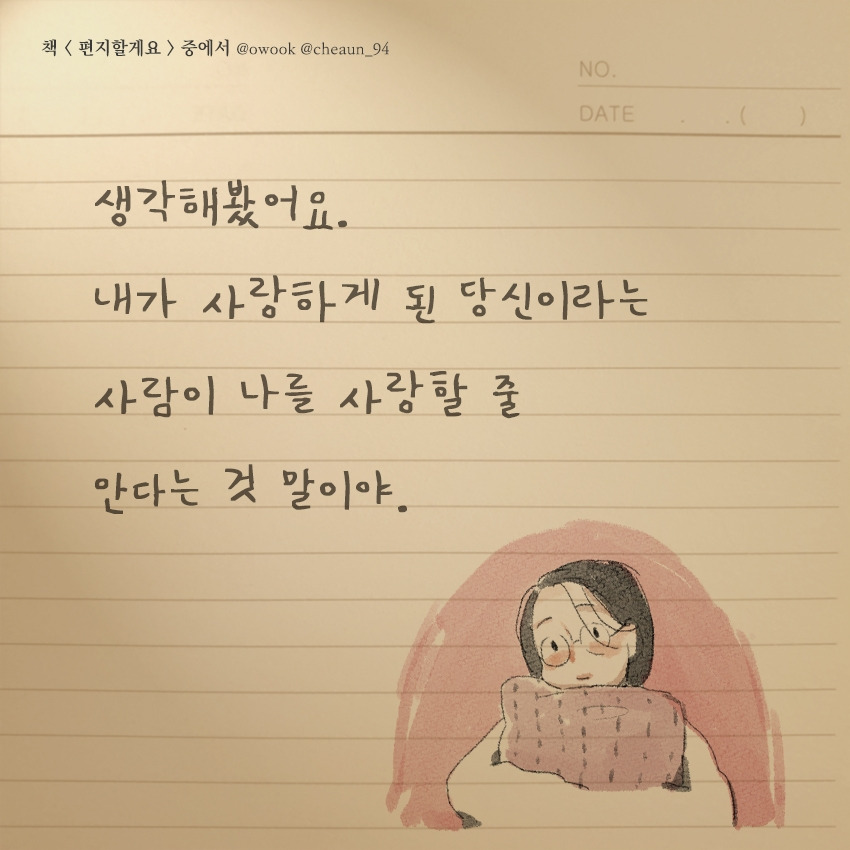 책 < 편지할게요 > 중에서 @owook @cheaun_94
NO.
DATE . . ( )
생각해봤어요.
내가 사랑하게 된 당신이라는
사람이 나를 사랑할 줄
안다는 것 말이야.